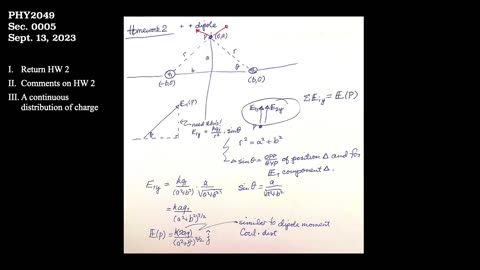 PHY2049
Sec. 0005
Sept. 13, 2023
I. Return HW 2
II. Comments on HW 2
III. A continuous
distribution of charge
Homework 2 + + dipole
P (0,a)
r r
a
q q
θ
(-b,0) b (b,0)
E₁(P)
θ
E₁y E₂y
P
ΣEiy = E(P)
need this!
E₁y = kq₁/r² · sinθ
r² = a² + b²
sinθ = opp/hyp of position Δ and for
E₁ component Δ.
E₁y = kq/(a²+b²) · a/√(a²+b²) sinθ = a/√(a²+b²)
= kaq/(a²+b²)^3/2
E(P) = k(2aq)/(a²+b²)^3/2 ĵ similar to dipole moment
Coul. dist